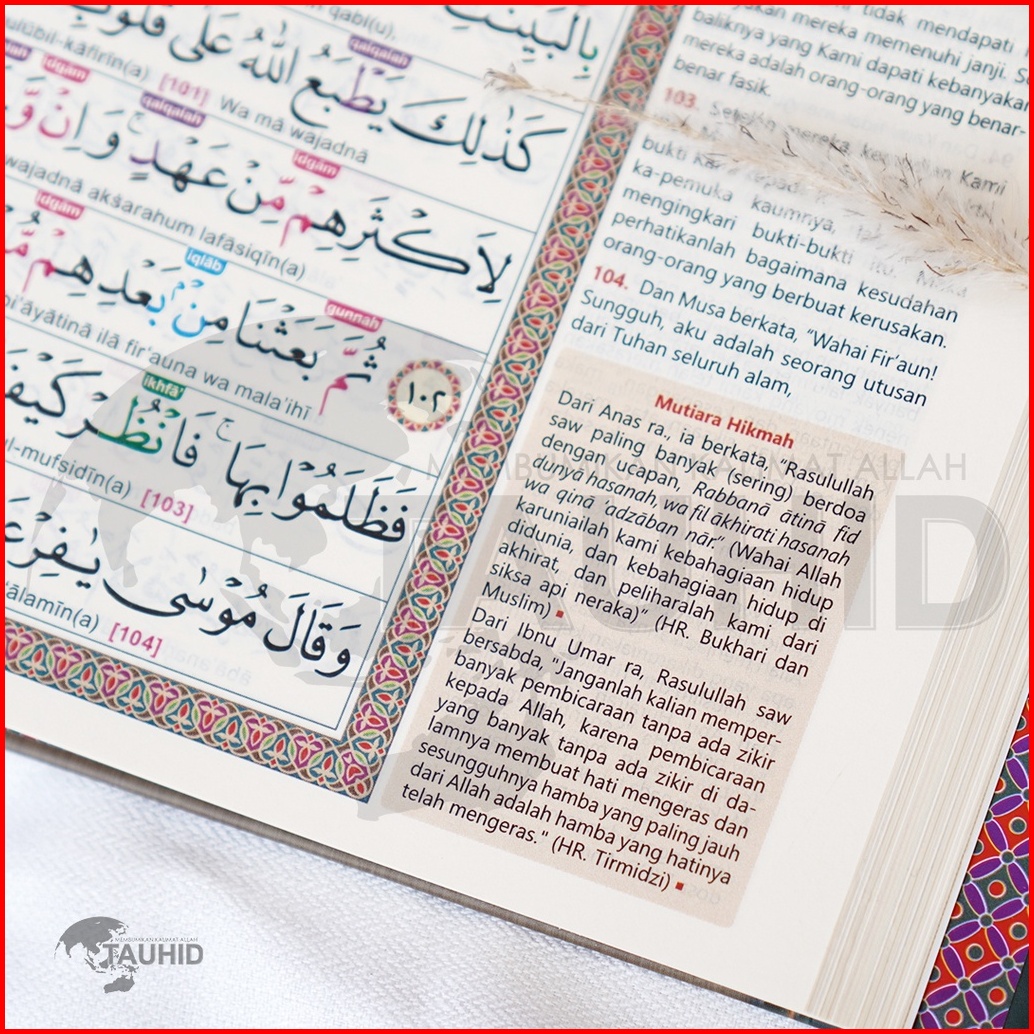 بِالْبَيِّنٰتِ
qabl(u),
qalqalah
lūbil-kāfirīn(a) [101] Wa mā wajadnā
كَذٰلِكَ يَطْبَعُ اللّٰهُ عَلٰى قُلُوْبِ
idgām
qalqalah
idgām
لِاَكْثَرِهِمْ مِّنْ عَهْدٍۚ وَاِنْ
wajadnā akṡarahum lafāsiqīn(a)
idgām
iqlāb
gunnah
ثُمَّ بَعَثْنَا مِنْۢ بَعْدِهِمْ
bi'āyātinā ilā fir'auna wa mala'ihī
ikhfā'
١٠٢
فَظَلَمُوْا بِهَاۚ فَانْظُرْ كَيْفَ
ul-mufsidīn(a) [103]
وَقَالَ مُوْسٰى يٰفِرْعَ
'ālamīn(a) [104]
tidak mendapati
kan mereka memenuhi janji. Se
baliknya yang Kami dapati kebanyakan
mereka adalah orang-orang yang benar-
benar fasik.
103. mereka Kami
bukti
ka-pemuka kaumnya,
mengingkari bukti-bukti itu. Maka
perhatikanlah bagaimana kesudahan
orang-orang yang berbuat kerusakan.
104. Dan Musa berkata, "Wahai Fir'aun!
Sungguh, aku adalah seorang utusan
dari Tuhan seluruh alam,
Mutiara Hikmah
Dari Anas ra., ia berkata, "Rasulullah
saw paling banyak (sering) berdoa
dengan ucapan, Rabbanā ātinā fid
dunyā hasanah, wa fil ākhirati hasanah
wa qinā 'adzāban nār." (Wahai Allah
karuniailah kami kebahagiaan hidup
didunia, dan kebahagiaan hidup di
akhirat, dan peliharalah kami dari
siksa api neraka)" (HR. Bukhari dan
Muslim)
Dari Ibnu Umar ra, Rasulullah saw
bersabda, "Janganlah kalian memper-
banyak pembicaraan tanpa ada zikir
kepada Allah, karena pembicaraan
yang banyak tanpa ada zikir di da-
lamnya membuat hati mengeras dan
sesungguhnya hamba yang paling jauh
dari Allah adalah hamba yang hatinya
telah mengeras." (HR. Tirmidzi)
MEMBUMIKAN KALIMAT ALLAH
TAUHID
MEMBUMIKAN KALIMAT ALLAH
TAUHID